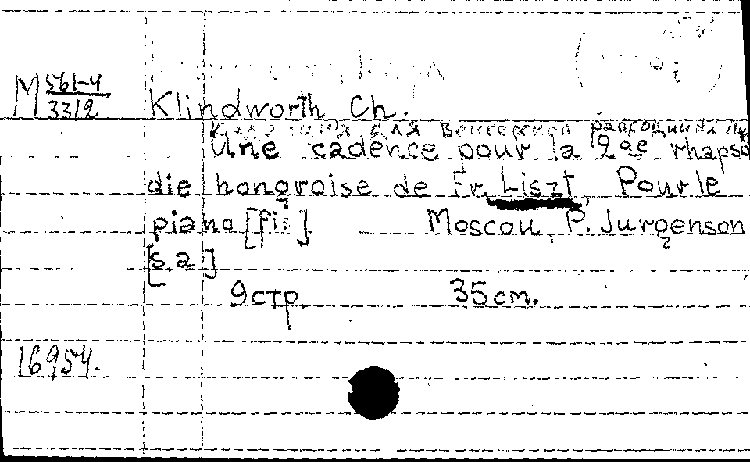 М 561-4
3312
Klindworth Ch.
Каденция для венгерской рапсодии
Une cadence pour la 2de rhapso
die hongroise de Fr. Liszt. Pour le
piano [fis] Moscou, P. Jurgenson
[s.a]
9 стр. 35 cm.
16954.